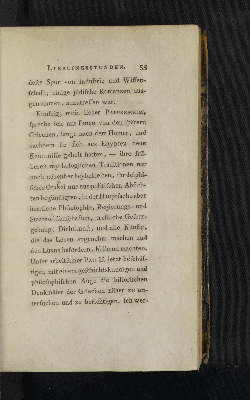 LIEBLINGSSTUNDEN. 55
deste Spur von Industrie und Wissen-
schaft, einige jüdische Romanzen aus-
genommen, anzutreffen war.
Künftig, mein lieber
spreche ich mit Ihnen von den spätern
Griechen, lange nach dem Homer, und
nachdem sie sich aus Egypten neue
Kenntnisse geholt hatten, — ihre frü-
heren mythologischen Traditionen nur
noch nebenher beybehielten, ihr delphi-
sches Orakel nur aus politischen Absich-
ten begünstigten, in der Hauptsache aber
inländische Philosophie, Regierungs- und
Staatswissenschaften, treffliche Gesetz-
gebung, Dichtkunst, und alle Künste,
die das Leben angenehm machen und
den Luxus befördern, blühend machten.
Unser arbeitsamer PAUW beschäf-
tiget, mit einem geschichtskundigen und
philosophischen Auge die historischen
Denkmäler der Griechen näher zu un-
tersuchen und zu berichtigen. Ich wer-